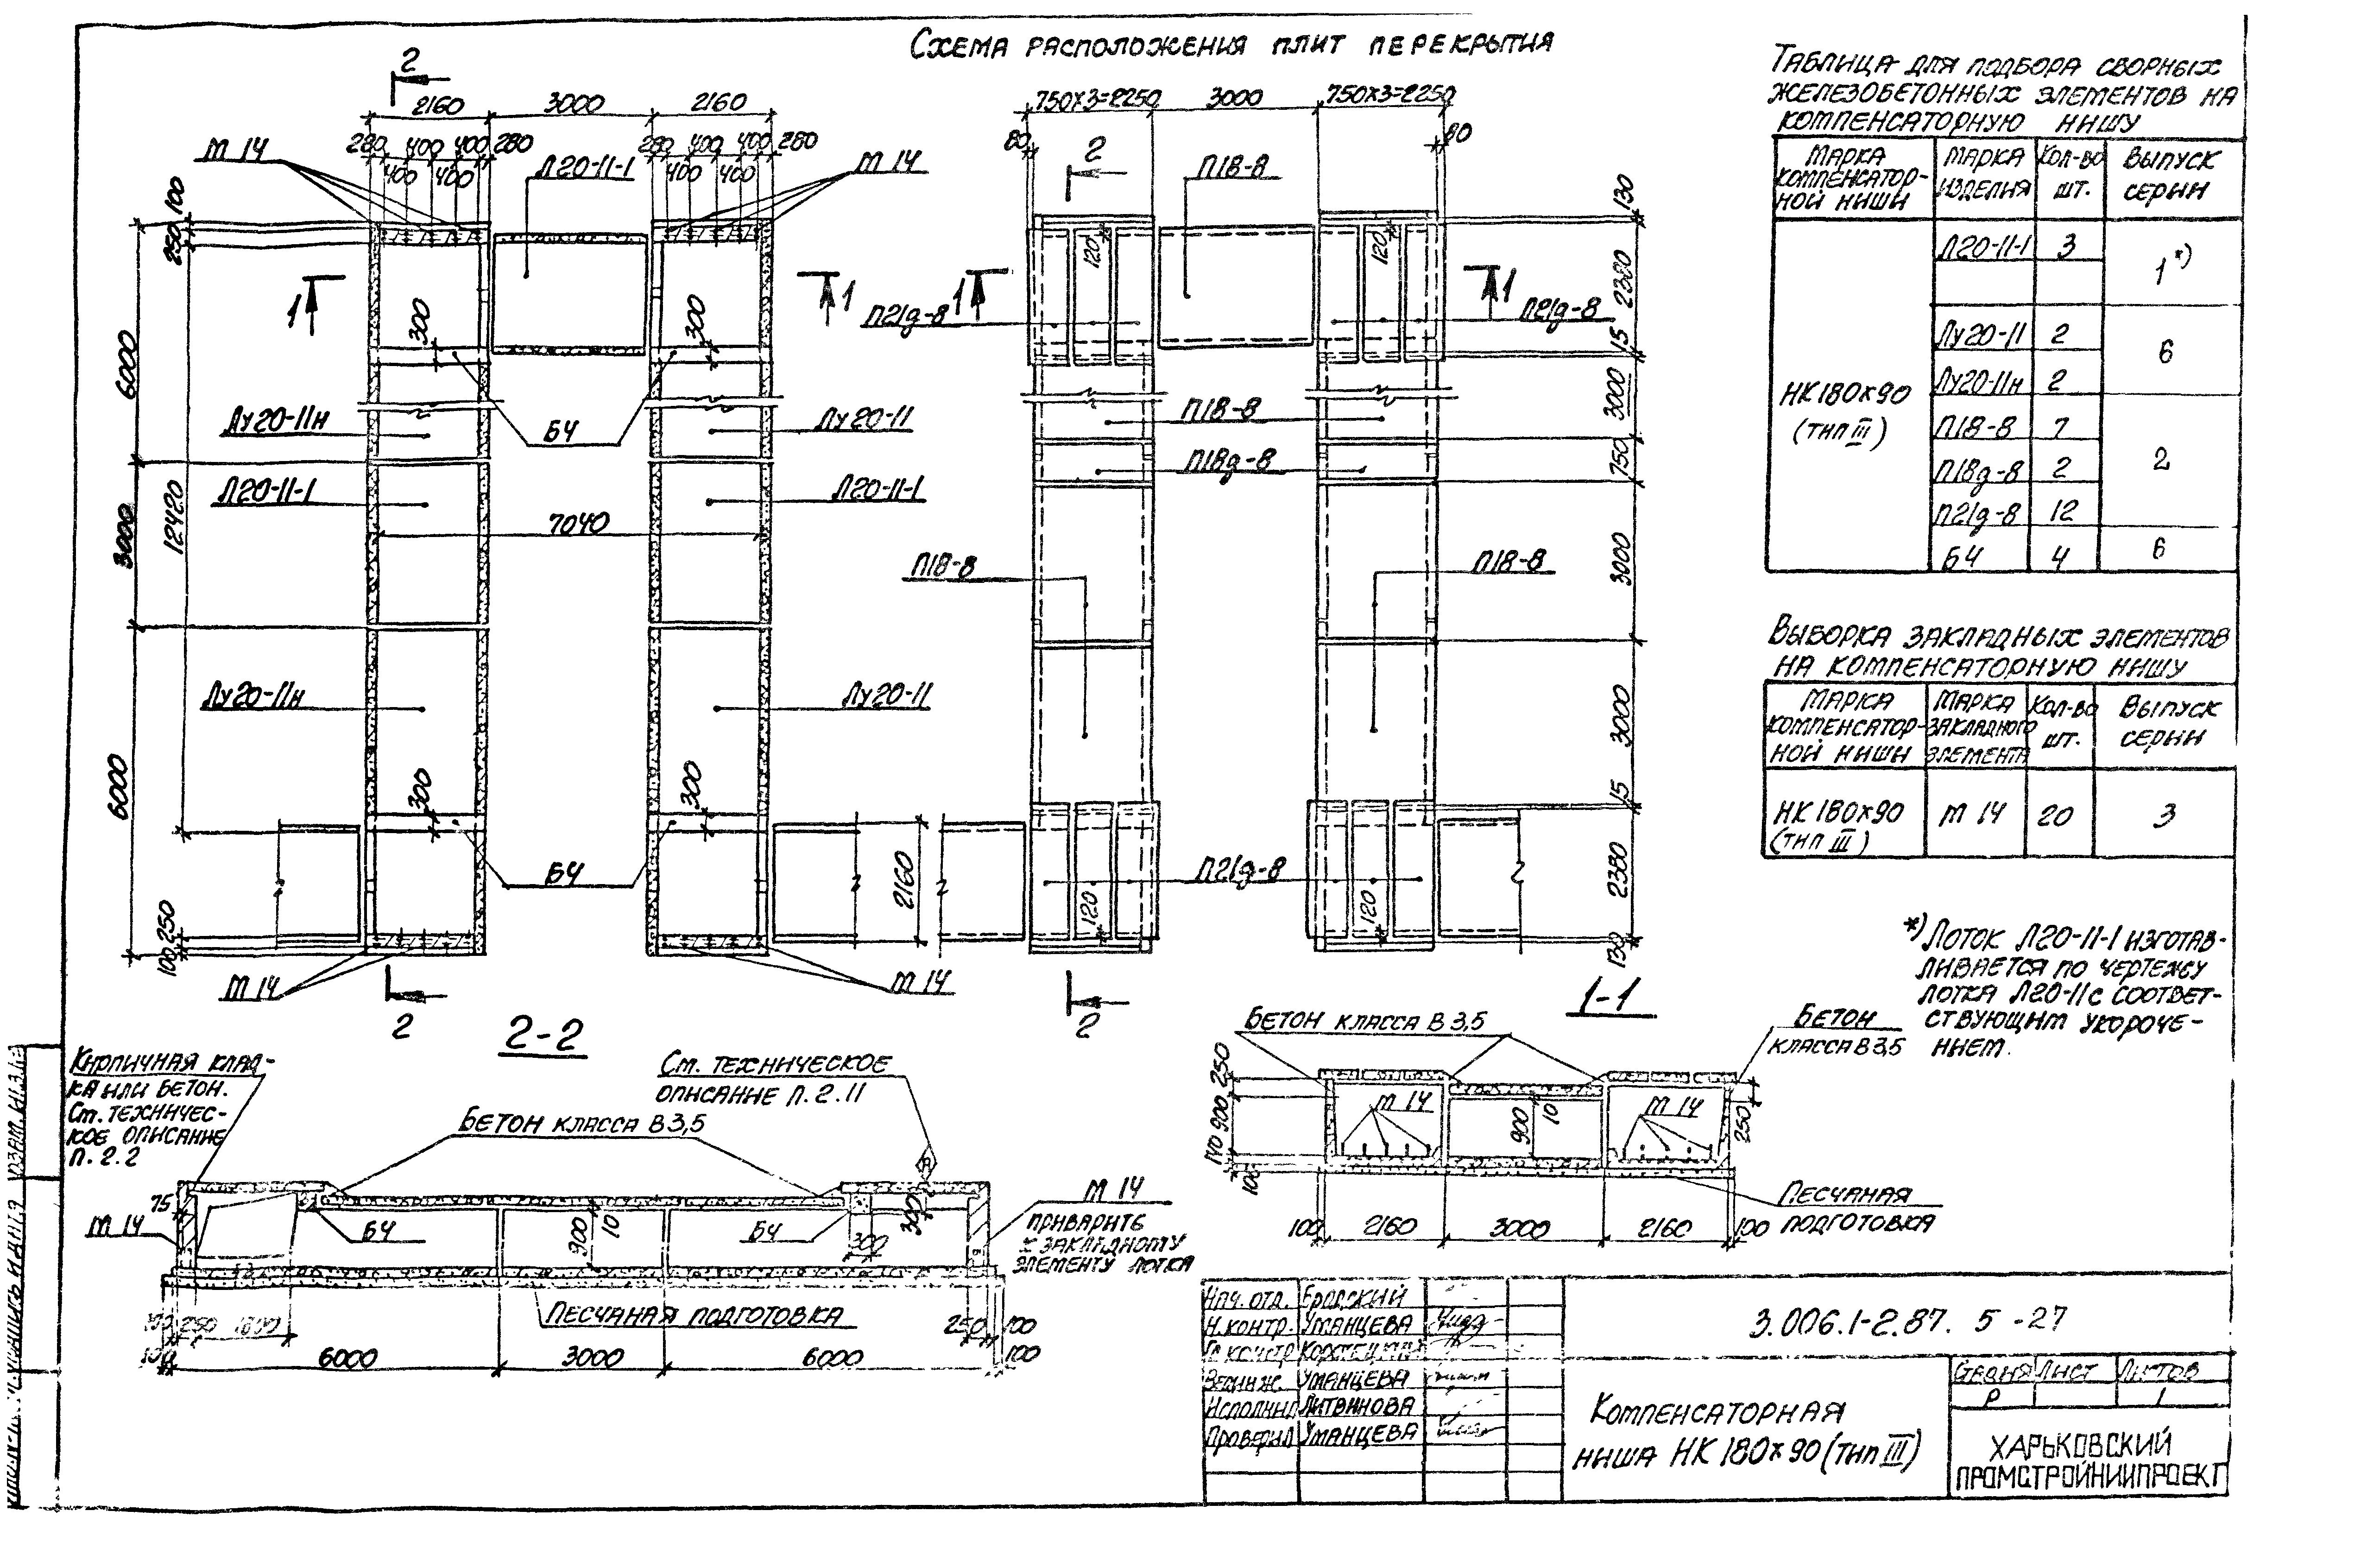 Схема расположения плит перекрытия
2
2160
3000
2160
280 400 400 400 280
400 400
280 400 400 400 280
400 400
М 14
Л20-11-1
М 14
100
250
6000
3000
6000
12420
1
1
300
300
Лу20-11н
Б4
Лу20-11
Л20-11-1
Л20-11-1
7040
Лу20-11н
Лу20-11
300
300
Б4
2160
250
100
М 14
М 14
2
750x3=2250
3000
750x3=2250
80
80
2
П18-8
120
120
1
1
П21д-8
П21д-8
П18-8
П18д-8
П18-8
П18-8
П21д-8
120
120
2
130
2380
15
3000
750
3000
3000
15
2380
130
Таблица для подбора сборных
железобетонных элементов на
компенсаторную нишу
Марка компенсатор-ной ниши
Марка изделия
Кол-во шт.
Выпуск серии
НК180x90 (тип III)
Л20-11-1 3 1*)
Лу20-11 2 6
Лу20-11н 2
П18-8 7 2
П18д-8 2
П21д-8 12
Б4 4 6
Выборка закладных элементов
на компенсаторную нишу
Марка компенсатор-ной ниши
Марка закладного элемента
Кол-во шт.
Выпуск серии
НК180x90 (тип III)
М 14 20 3
*) Лоток Л20-11-1 изготав-
ливается по чертежу
лотка Л20-11 с соответ-
ствующим укороче-
нием.
2-2
Кирпичная клад-
ка или бетон.
См. техничес-
кое описание
п. 2.2
См. техническое
описание п. 2.11
Бетон класса В3,5
75
М 14
Б4
900
10
Б4
300
300
М 14
приварить
к закладному
элементу лотка
Песчаная подготовка
250
250 100
6000
3000
6000
100
1-1
Бетон класса В3,5
Бетон
класса В3,5
250
900
140
100
М 14
900
10
М 14
250
Песчаная
подготовка
100 2160 3000 2160 100
Нач. отд. Бродский
Н.контр. Уманцева
Уманцева
Исполнил Литвинова
Проверил Уманцева
3.006.1-2.87. 5-27
Компенсаторная
ниша НК 180x90 (тип III)
Стадия Лист Листов
Р 1
Харьковский
Промстройниипроект